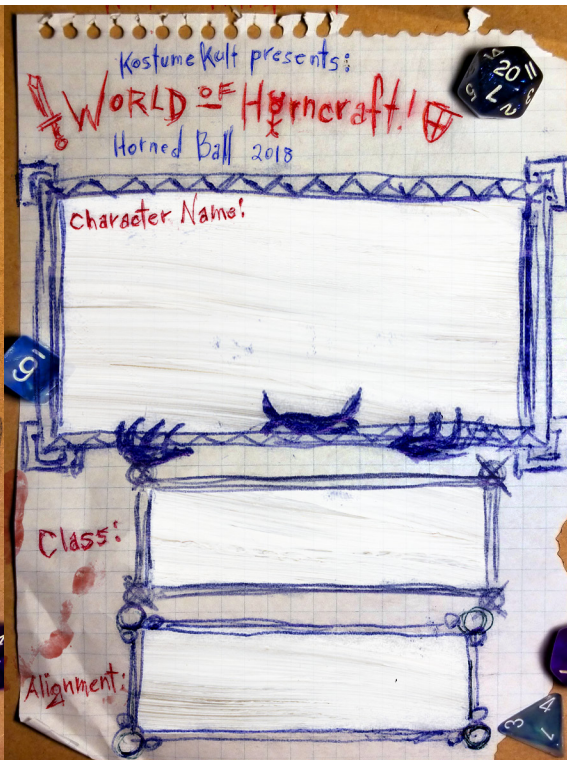 Kostume Kult presents:
WORLD OF Horncraft!
Horned Ball 2018
Character Name:
Class:
Alignment:
14
20
11
5
7
2
3
9
3
1